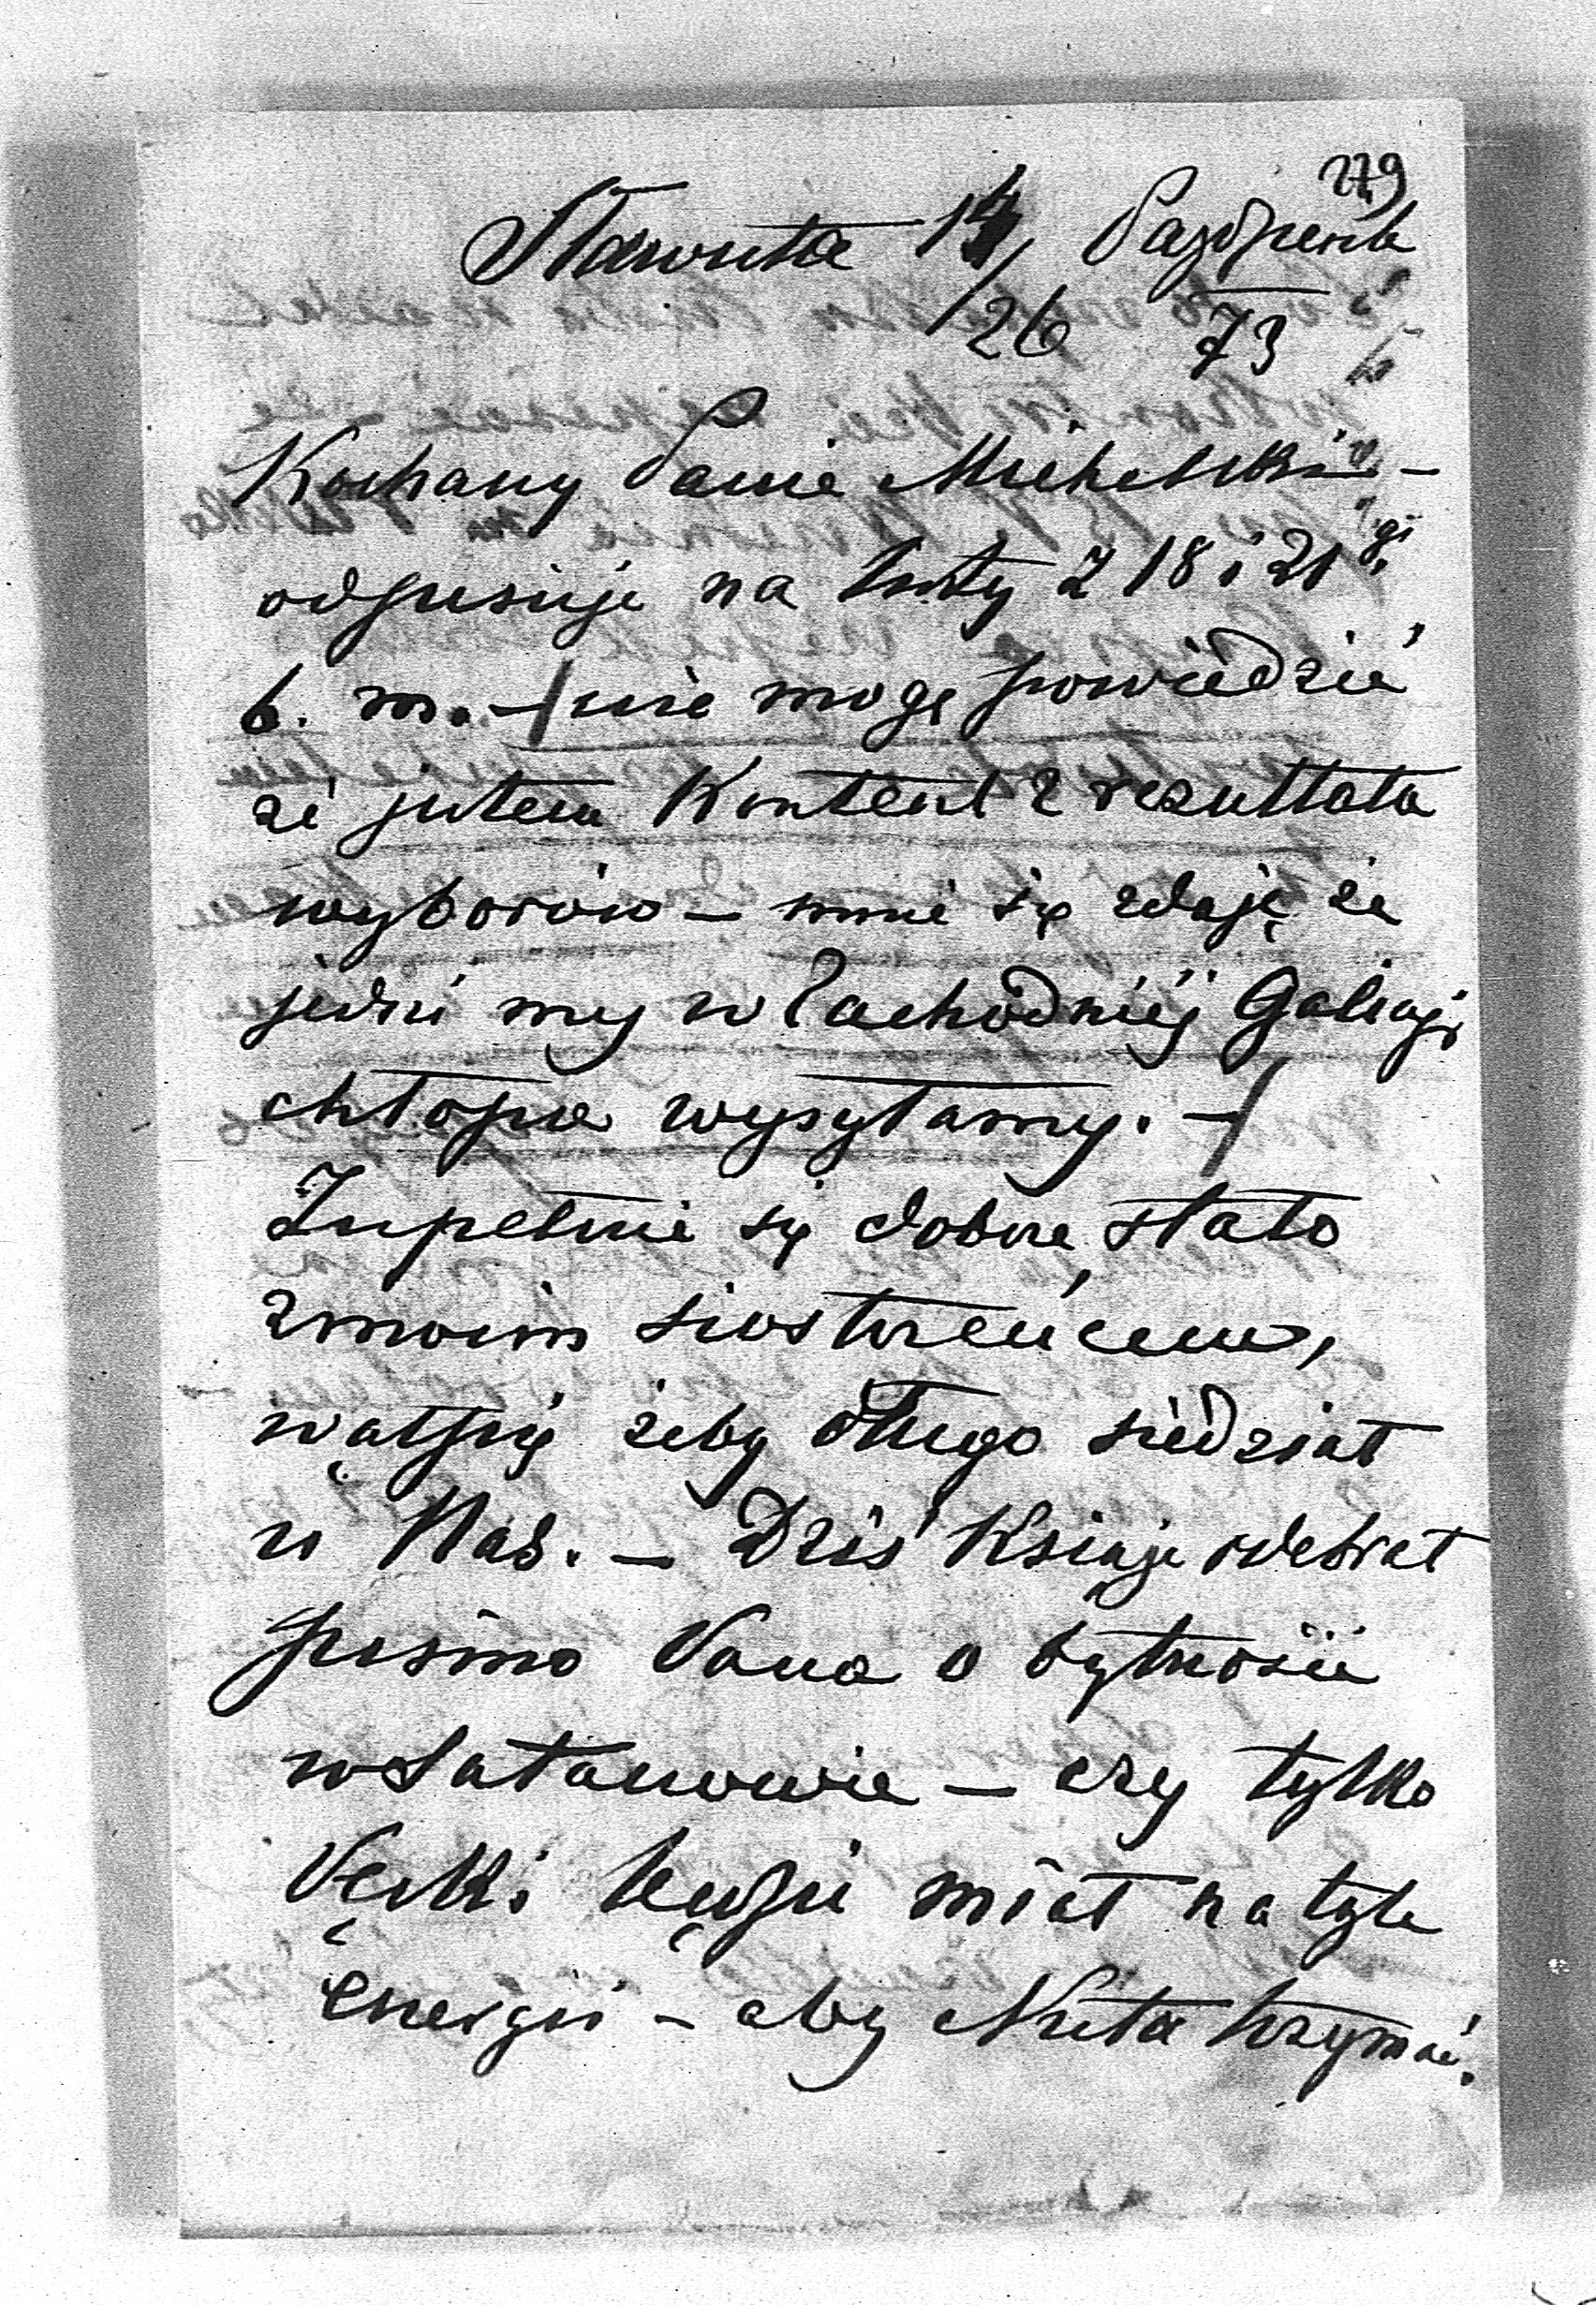 279
Sławuta 14/26 Paździer. 73
Kochany Panie Michelski –
odpisuję na listy z 18 i 21 go
b. m. – nie mogę powiedzieć
że jestem kontent z rezultata
wyborów – mnie się zdaję że
jedni my w Zachodniéj Galicyi
chłopa wysyłamy. –
Zupełnie się dobrze stało
z moim siostrzeńcem,
wątpię żeby długo siedział
w Nad. – Dziś Książe odebrał
pismo Pana o bytności
w Satanowie – czy tylko
będzie miał na tyle
energii – aby Nuta trzymać.